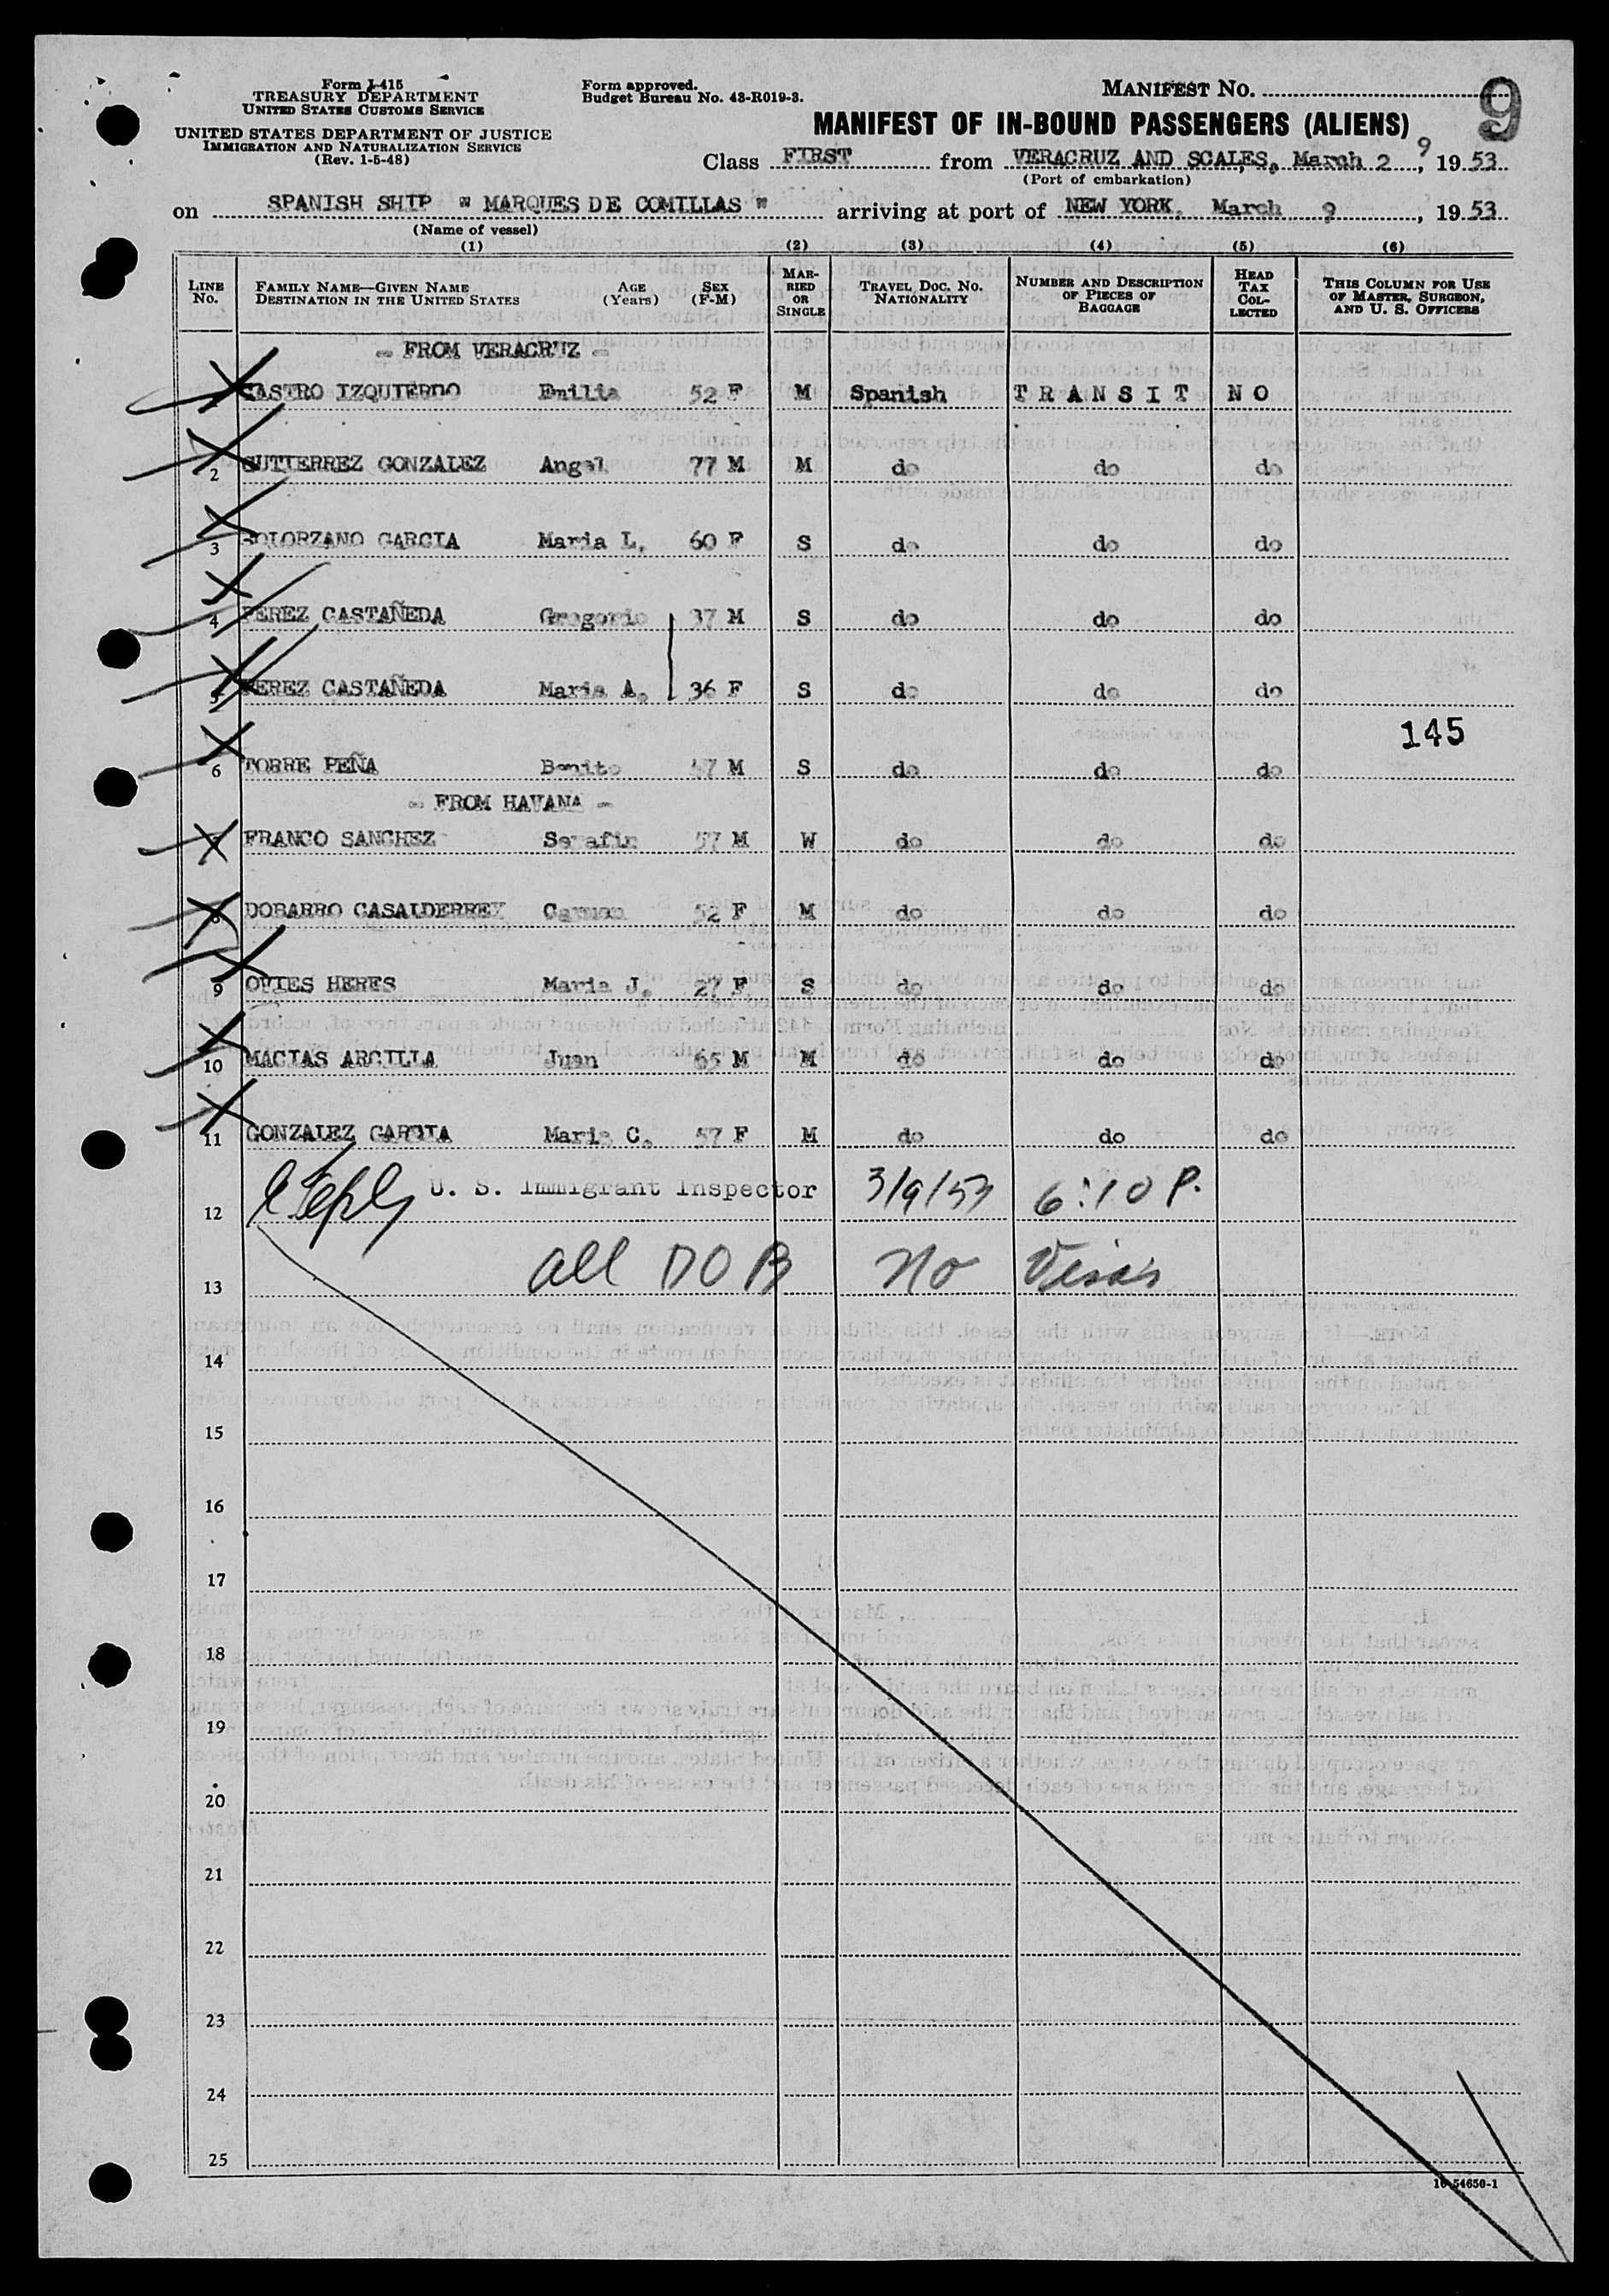 Form I-415
TREASURY DEPARTMENT
UNITED STATES CUSTOMS SERVICE
UNITED STATES DEPARTMENT OF JUSTICE
IMMIGRATION AND NATURALIZATION SERVICE
(Rev. 1-5-48)
Form approved.
Budget Bureau No. 43-R019-3.
MANIFEST No. 9
MANIFEST OF IN-BOUND PASSENGERS (ALIENS)
Class FIRST from VERACRUZ AND SCALES, March 2 9, 1953
(Port of embarkation)
on SPANISH SHIP " MARQUES DE COMILLAS " arriving at port of NEW YORK, March 9, 1953
(Name of vessel)
(1) (2) (3) (4) (5) (6)
LINE No. FAMILY NAME—GIVEN NAME DESTINATION IN THE UNITED STATES AGE (Years) SEX (F-M) MARRIED OR SINGLE TRAVEL DOC. NO. NATIONALITY NUMBER AND DESCRIPTION OF PIECES OF BAGGAGE HEAD TAX COLLECTED THIS COLUMN FOR USE OF MASTER, SURGEON, AND U. S. OFFICERS
- FROM VERACRUZ -
1 CASTRO IZQUIERDO Emilia 52 F M Spanish TRANSIT NO
2 GUTIERREZ GONZALEZ Angel 77 M M do do do
3 SOLORZANO GARCIA Maria L. 60 F S do do do
4 PEREZ CASTAÑEDA Gregorio 37 M S do do do
5 PEREZ CASTAÑEDA Maria A. 36 F S do do do
145
6 TORRE PEÑA Benito 47 M S do do do
- FROM HAVANA -
7 FRANCO SANCHEZ Serafin 57 M W do do do
8 DOBARRO CASALDERREY Carmen 52 F M do do do
9 OVIES HERES Maria J. 27 F S do do do
10 MACIAS ARCILLA Juan 65 M M do do do
11 GONZALEZ GARCIA Maria C. 57 F M do do do
12 U. S. Immigrant Inspector 3/9/53 6:10 P.
13 all DOB No Visas
14
15
16
17
18
19
20
21
22
23
24
25
16-54650-1